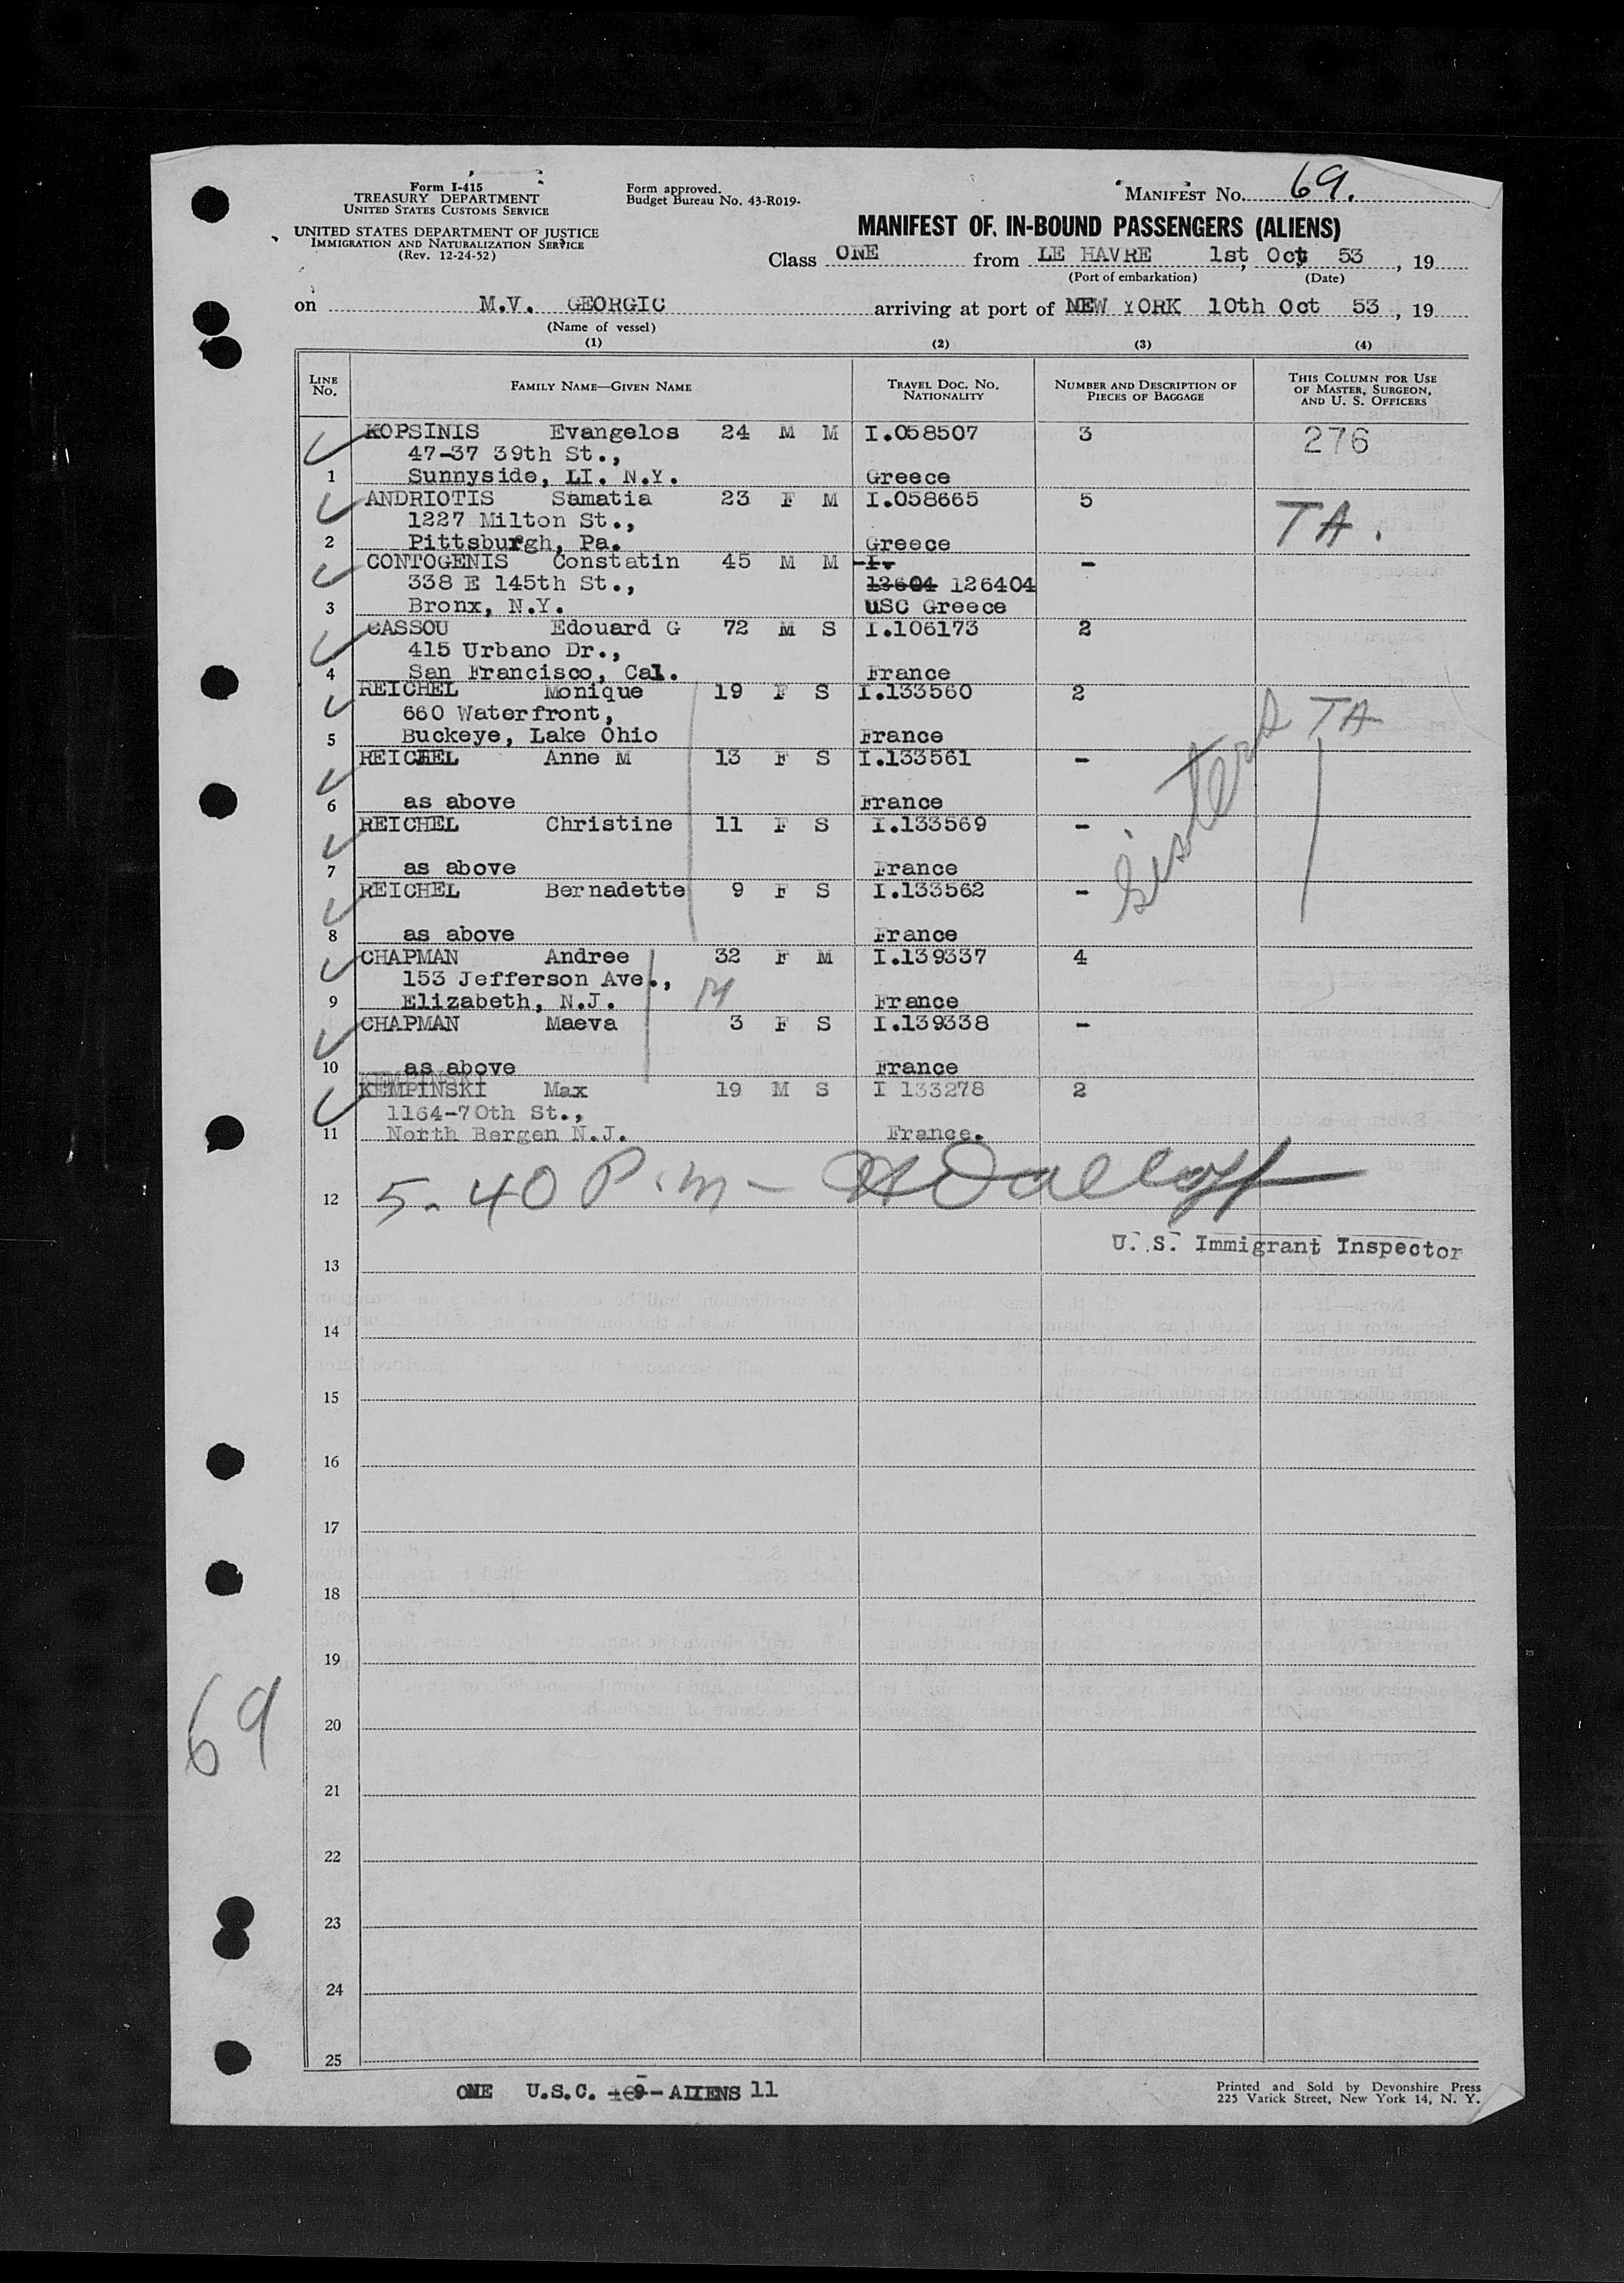 Form I-415
TREASURY DEPARTMENT
UNITED STATES CUSTOMS SERVICE
UNITED STATES DEPARTMENT OF JUSTICE
IMMIGRATION AND NATURALIZATION SERVICE
(Rev. 12-24-52)
Form approved.
Budget Bureau No. 43-R019-
MANIFEST NO. 69.
MANIFEST OF IN-BOUND PASSENGERS (ALIENS)
Class ONE from LE HAVRE 1st, Oct 53, 19
(Port of embarkation) (Date)
on M.V. GEORGIC arriving at port of NEW YORK 10th Oct 53, 19
(Name of vessel)
(1) (2) (3) (4)
LINE NO. FAMILY NAME—GIVEN NAME TRAVEL DOC. NO. NATIONALITY NUMBER AND DESCRIPTION OF PIECES OF BAGGAGE THIS COLUMN FOR USE OF MASTER, SURGEON, AND U. S. OFFICERS
KOPSINIS Evangelos 24 M M I.058507 3 276
47-37 39th St.,
1 Sunnyside, LI. N.Y. Greece
ANDRIOTIS Samatia 23 F M I.058665 5 TA.
1227 Milton St.,
2 Pittsburgh, Pa. Greece
CONTOGENIS Constatin 45 M M I. -
338 E 145th St., 12604 126404
3 Bronx, N.Y. USC Greece
CASSOU Edouard G 72 M S I.106173 2
415 Urbano Dr.,
4 San Francisco, Cal. France
REICHEL Monique 19 F S I.133560 2 Sisters TA
660 Waterfront,
5 Buckeye, Lake Ohio France
REICHEL Anne M 13 F S I.133561 -
6 as above France
REICHEL Christine 11 F S I.133569 -
7 as above France
REICHEL Bernadette 9 F S I.133562 -
8 as above France
CHAPMAN Andree 32 F M I.139337 4
153 Jefferson Ave.,
9 Elizabeth, N.J. M France
CHAPMAN Maeva 3 F S I.139338 -
10 as above France
KEMPINSKI Max 19 M S I 133278 2
1164-70th St.,
11 North Bergen N.J. France.
12 5.40 P.m-
U. S. Immigrant Inspector
13
14
15
16
17
18
19
69
20
21
22
23
24
25
ONE U.S.C. 10 9 - ALIENS 11
Printed and Sold by Devonshire Press
225 Varick Street, New York 14, N. Y.